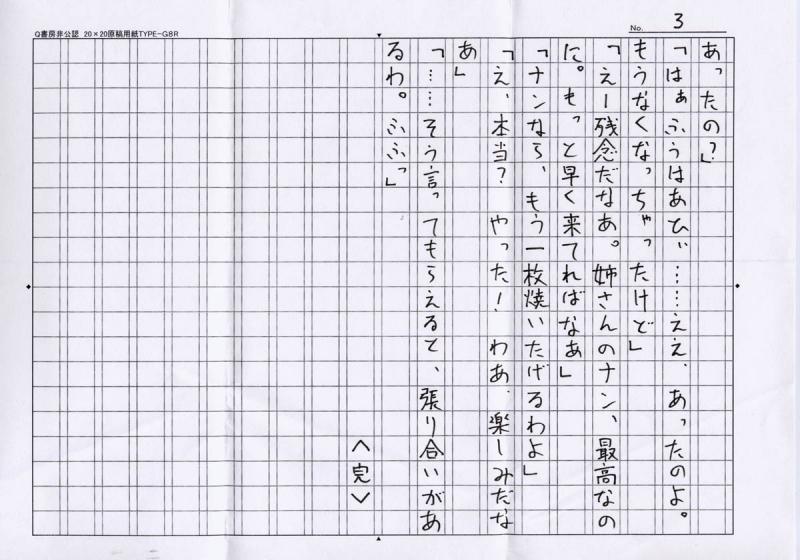 Q書房非公認 20×20原稿用紙TYPE-G8R
No. 3
あったの？」
「はぁふうはあひぃ……ええ、あったのよ。
もうなくなっちゃったけど」
「えー残念だなあ。姉さんのナン、最高なの
に。もっと早く来てればなあ」
「ナンなら、もう一枚焼いたげるわよ」
「え、本当？　やった！　わあ、楽しみだな
あ」
「……そう言ってもらえると、張り合いがあ
るわ。ふふっ」
〈完〉